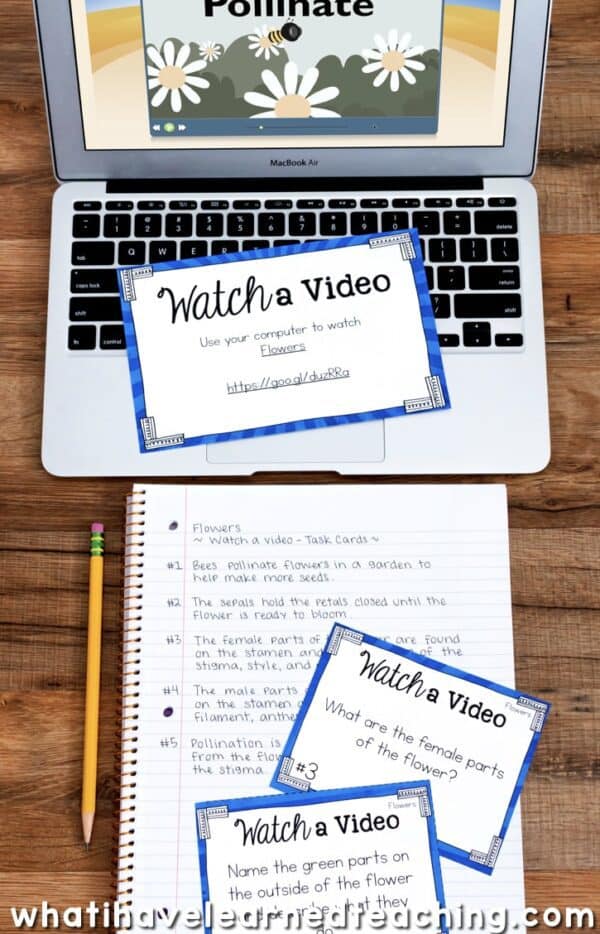 Pollinate
MacBook Air
Watch a Video
Use your computer to watch
Flowers
https://goo.gl/duzRRa
Flowers
~ Watch a video - Task Cards ~
#1 Bees pollinate flowers in a garden to
help make more seeds.
#2 The sepals hold the petals closed until the
flower is ready to bloom.
#3 The female parts of are found
on the stamen and of the
stigma, style, and
#4 The male parts
on the stamen
filament,
#5 Pollination is
from the
the stigma.
Watch a Video
Flowers
What are the female parts
of the flower?
#3
Flowers
Watch a Video
Name the green parts on
the outside of the flower
what they
do.
whatihavelearnedteaching.com